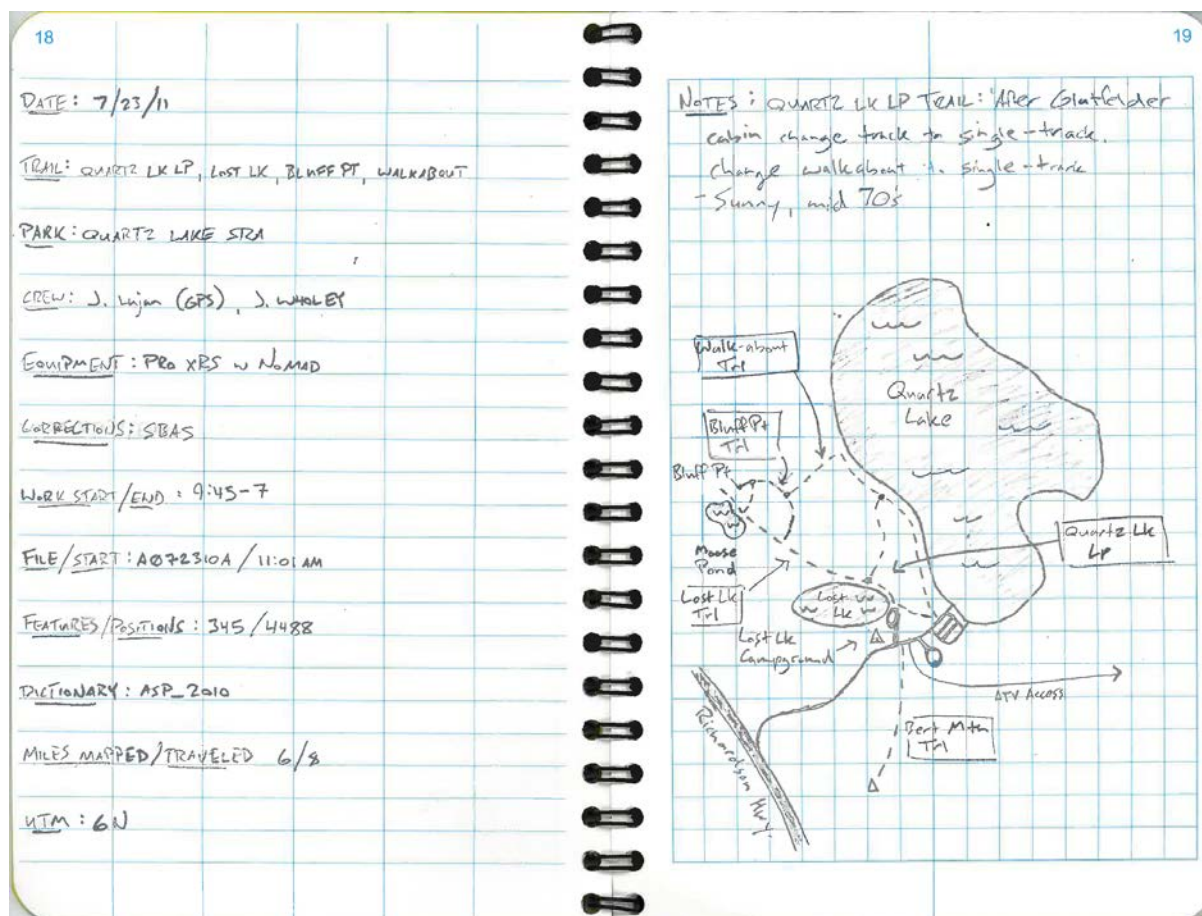 18
DATE: 7/23/11
TRAIL: QUARTZ LK LP, LOST LK, BLUFF PT, WALKABOUT
PARK: QUARTZ LAKE SRA
CREW: J. Lujan (GPS), J. WHOLEY
EQUIPMENT: PRO XRS w NOMAD
CORRECTIONS: SBAS
WORK START/END: 9:45-7
FILE/START: A072310A / 11:01 AM
FEATURES/POSITIONS: 345/4488
DICTIONARY: ASP_2010
MILES MAPPED/TRAVELED 6/8
UTM: 6N
19
NOTES: QUARTZ LK LP TRAIL: After Glatfelder
cabin change track to single-track.
change walkabout to single-track
- Sunny, mid 70's
Walk-about
Trl
Quartz
Lake
Bluff Pt
Trl
Bluff Pt
Moose
Pond
Quartz Lk
LP
Lost Lk
Trl
Lost
Lk
Lost Lk
Campground
ATV Access
Richardson Hwy.
Bert Mtn
Trl